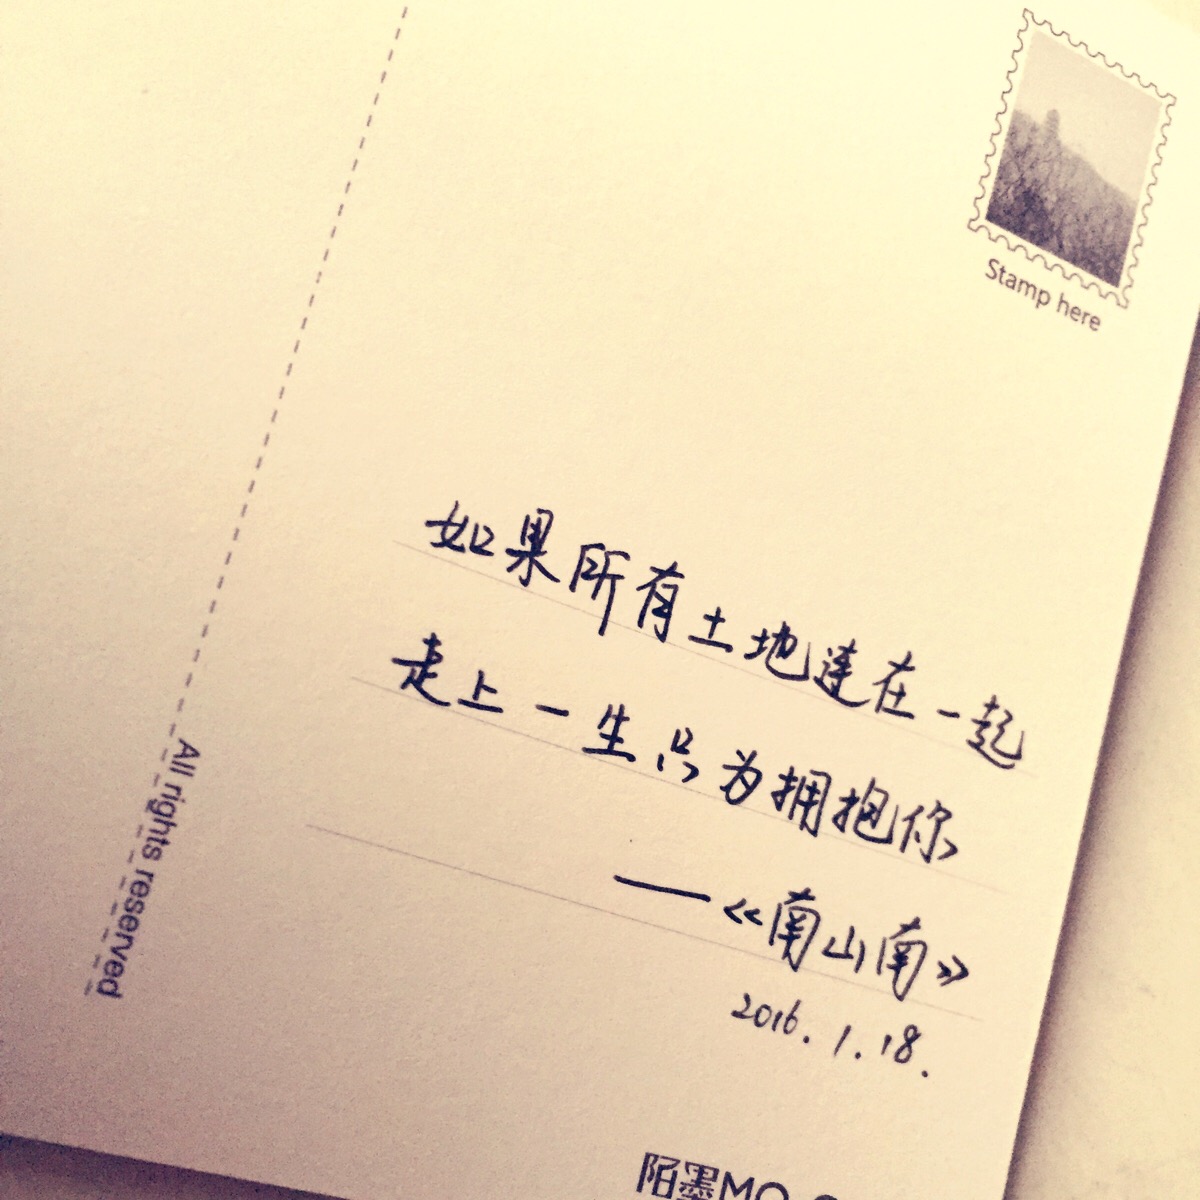 Stamp here
如果所有土地连在一起
走上一生只为拥抱你
——《南山南》
2016.1.18.
All rights reserved
陌墨MO